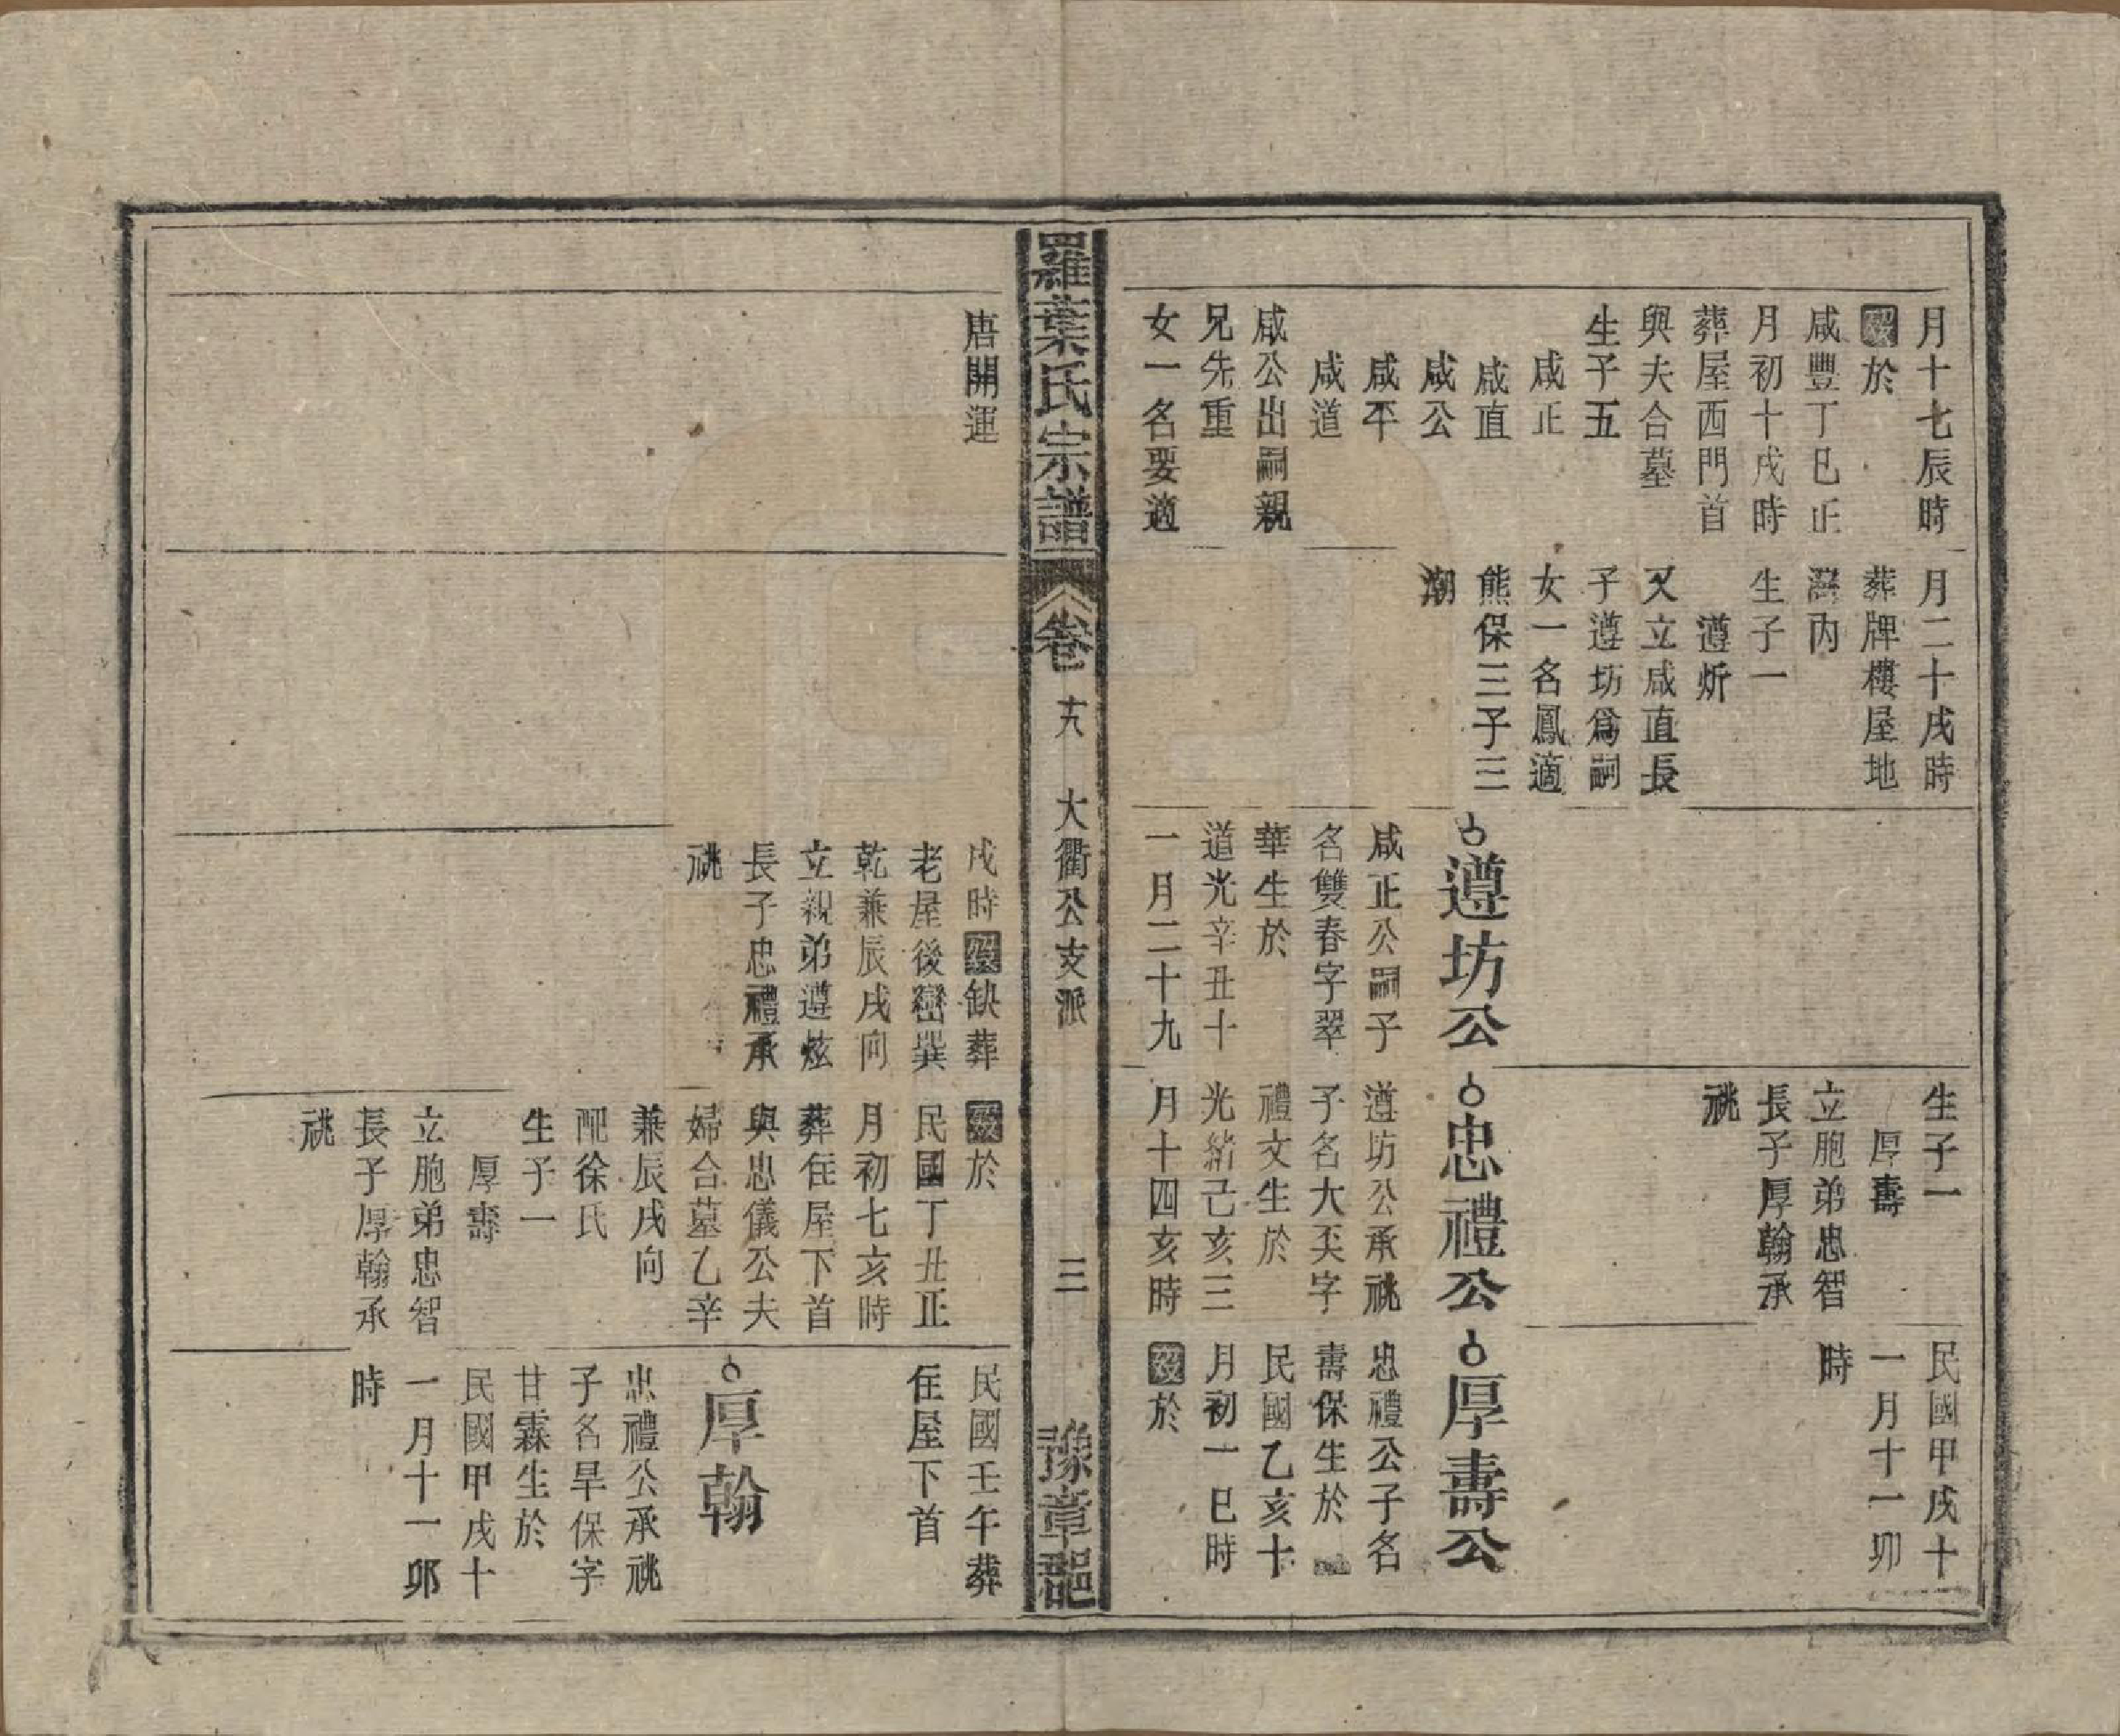 月十七辰時
歿於
咸豐丁巳正
月初十戌時
葬屋西門首
與夫合墓
生子五
咸正
咸直
咸公
咸平
咸道
咸公出嗣親
兄先重
女一名要適
月二十戌時
葬牌樓屋地
灣內
生子一
遵炘
又立咸直長
子遵坊爲嗣
女一名鳳適
熊保三子三
潮
遵坊公
咸正公嗣子
名雙春字翠
華生於
道光辛丑十
一月二十九
生子一
厚壽
立胞弟忠智
長子厚翰承
祧
忠禮公
遵坊公承祧
子名大奀字
禮文生於
光緒己亥三
月十四亥時
民國甲戌十
一月十一卯
時
厚壽公
忠禮公子名
壽保生於
民國乙亥十
月初一巳時
歿於
羅葉氏宗譜
卷 十八
大衢公支派
三
豫章郡
唐開運
戌時歿缺葬
老屋後巒巽
乾兼辰戌向
立親弟遵炫
長子忠禮承
祧
歿於
民國丁丑正
月初七亥時
葬住屋下首
與忠儀公夫
婦合墓乙辛
兼辰戌向
配徐氏
生子一
厚壽
立胞弟忠智
長子厚翰承
祧
民國壬午葬
住屋下首
厚翰
忠禮公承祧
子名早保字
甘霖生於
民國甲戌十
一月十一卯
時